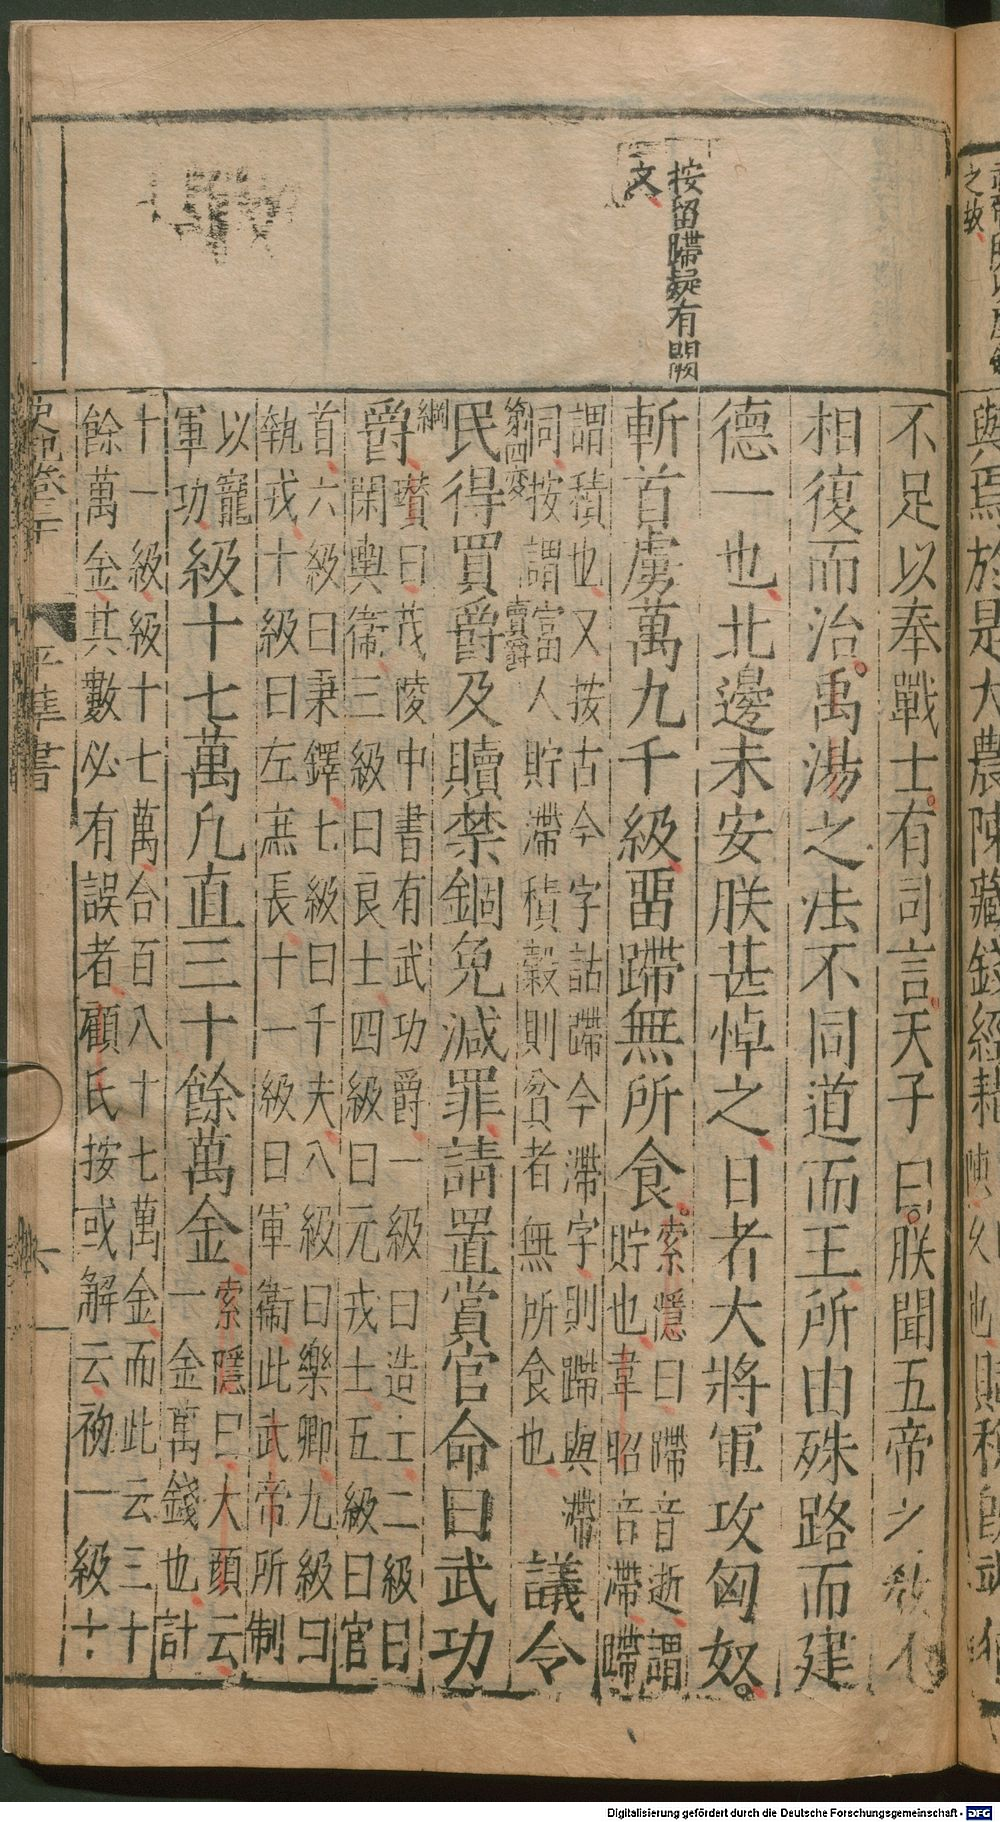 與焉於是大農陳藏錢經耗 陳久也 賦稅
之故
按留蹛疑有闕
文
不足以奉戰士有司言天子曰朕聞五帝之教不
相復而治禹湯之法不同道而王所由殊路而建
德一也北邊未安朕甚悼之日者大將軍攻匈奴
斬首虜萬九千級畱蹛無所食
索隱曰蹛音逝謂
貯也韋昭音滯蹛
謂積也又按古今字詁蹛今滯字則蹛與滯
同按謂富人貯滯積穀則貧者無所食也
議令
第四变
賣爵
民得買爵及贖禁錮免減罪請置賞官命曰武功
綱
爵
瓚曰茂陵中書有武功爵一級曰造士二級曰
閑輿衛三級曰良士四級曰元戎士五級曰官
首六級曰秉鐸七級曰千夫八級曰樂卿九級曰
執戎十級曰左庶長十一級曰軍衛此武帝所制
以寵
軍功
級十七萬凡直三十餘萬金
索隱曰大顏云
一金萬錢也計
十一級級十七萬合百八十七萬金而此云三十
餘萬金其數必有誤者顧氏按或解云初一級十
史記卷三十
平準書
六
Digitalisierung gefördert durch die Deutsche Forschungsgemeinschaft - DFG